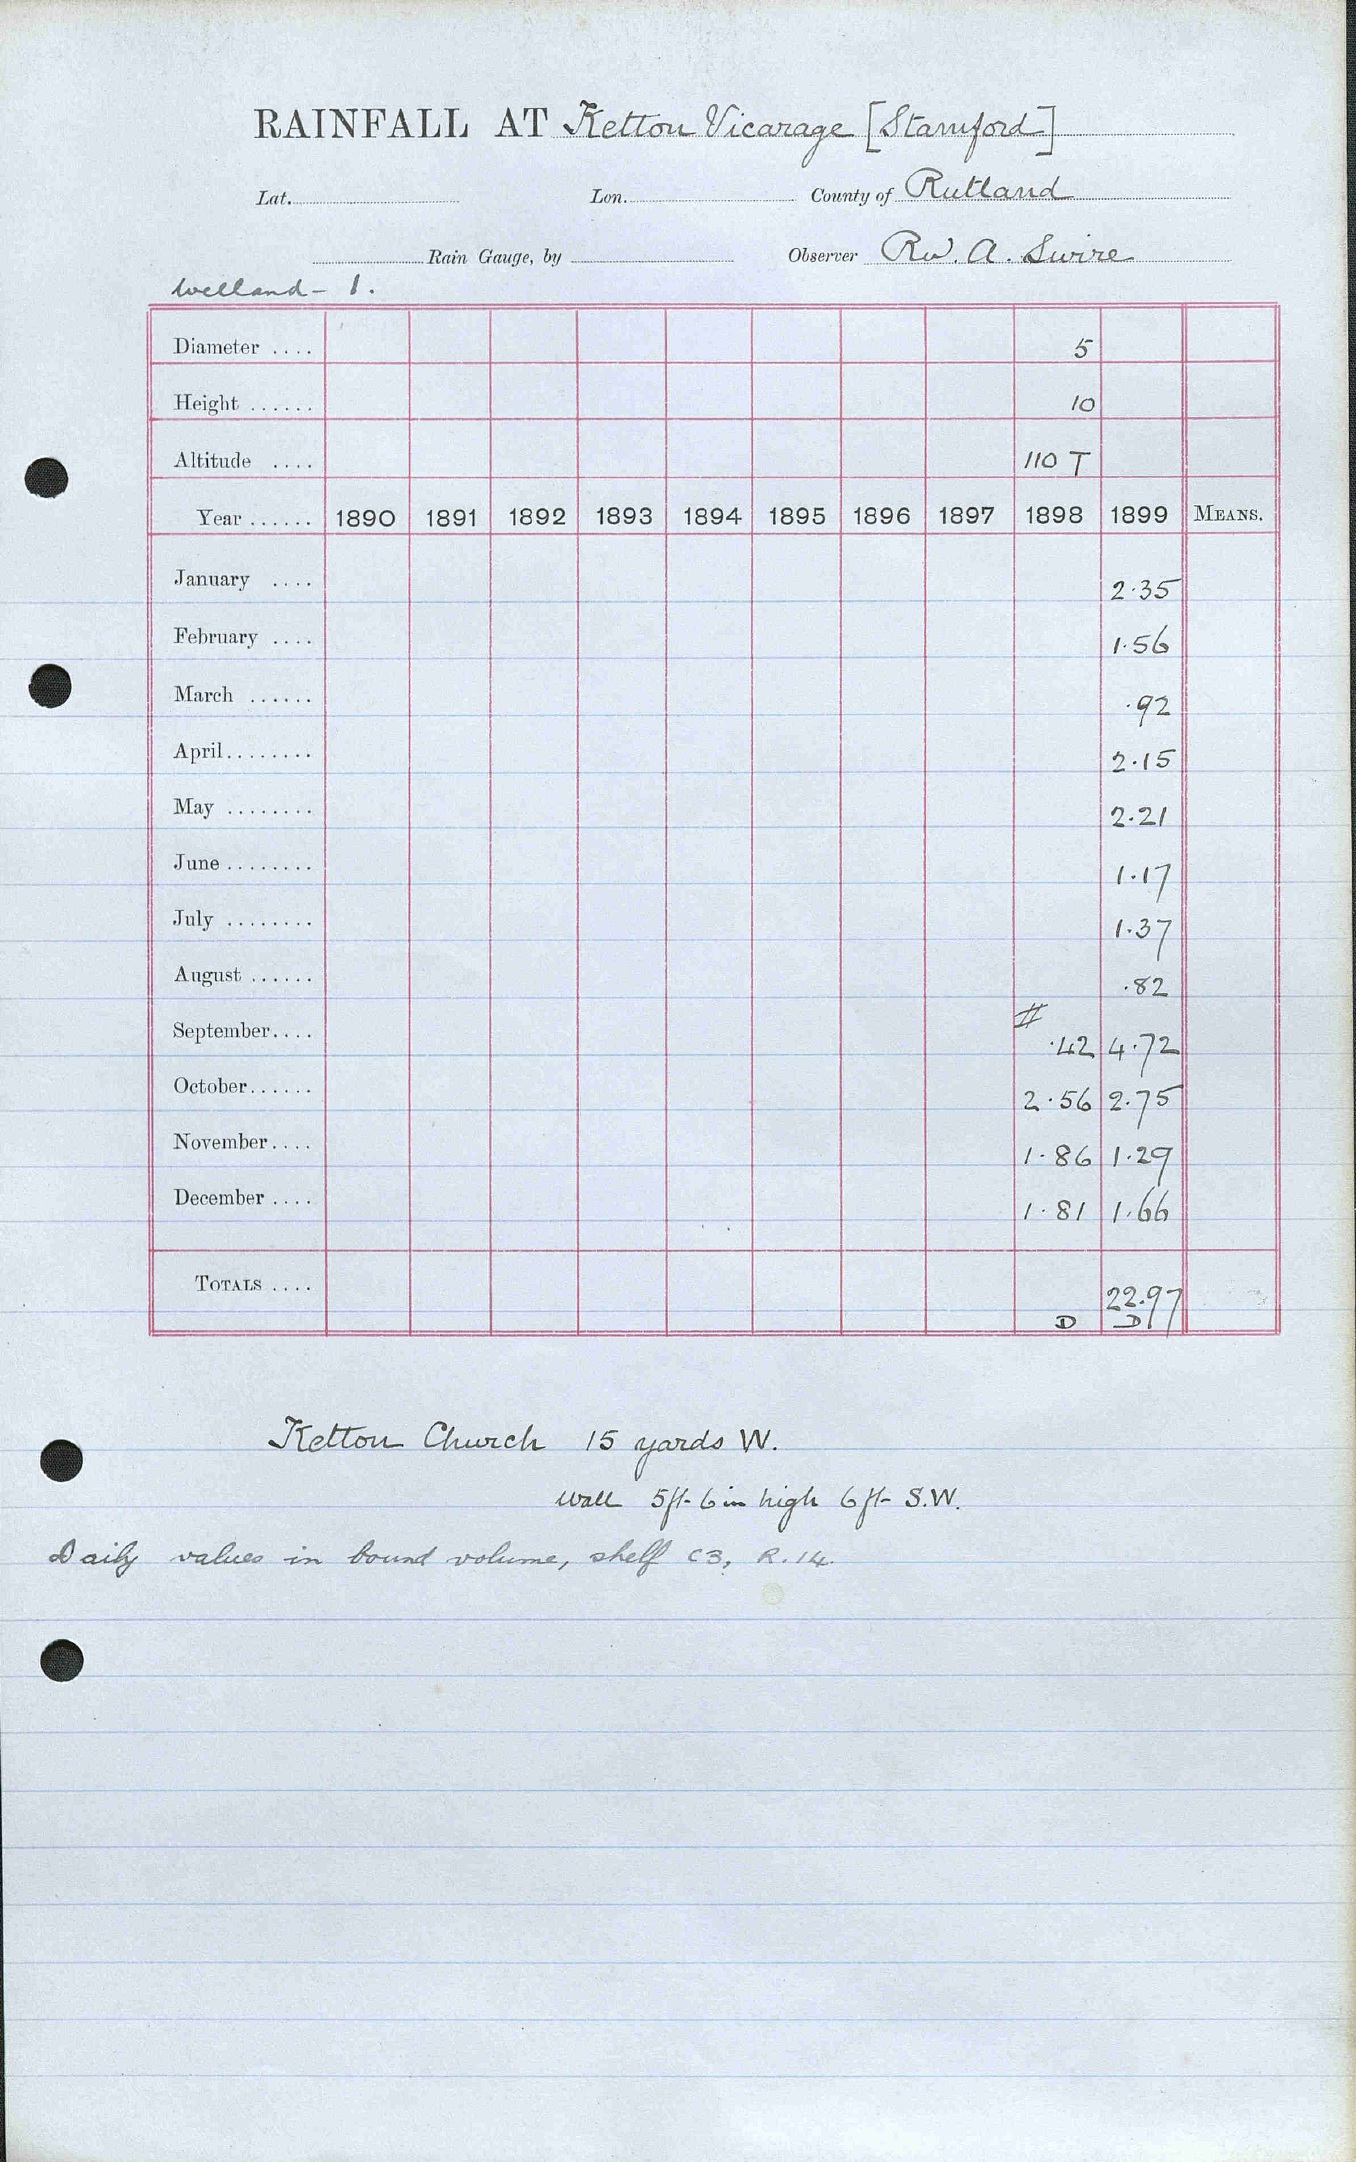 RAINFALL AT Ketton Vicarage [Stamford]
Lat. Lon. County of Rutland
Rain Gauge, by Observer Rev. A. Swire
Welland - 1.
Diameter .... 5
Height ...... 10
Altitude .... 110 T
Year ...... 1890 1891 1892 1893 1894 1895 1896 1897 1898 1899 MEANS.
January .... 2.35
February .... 1.56
March ...... .92
April........ 2.15
May ........ 2.21
June ........ 1.17
July ........ 1.37
August ...... .82
#
September.... .42 4.72
October...... 2.56 2.75
November.... 1.86 1.29
December .... 1.81 1.66
TOTALS .... 22.97
D D
Ketton Church 15 yards W.
Wall 5ft 6in high 6ft S.W.
Daily values in bound volume, shelf C3, R.14.